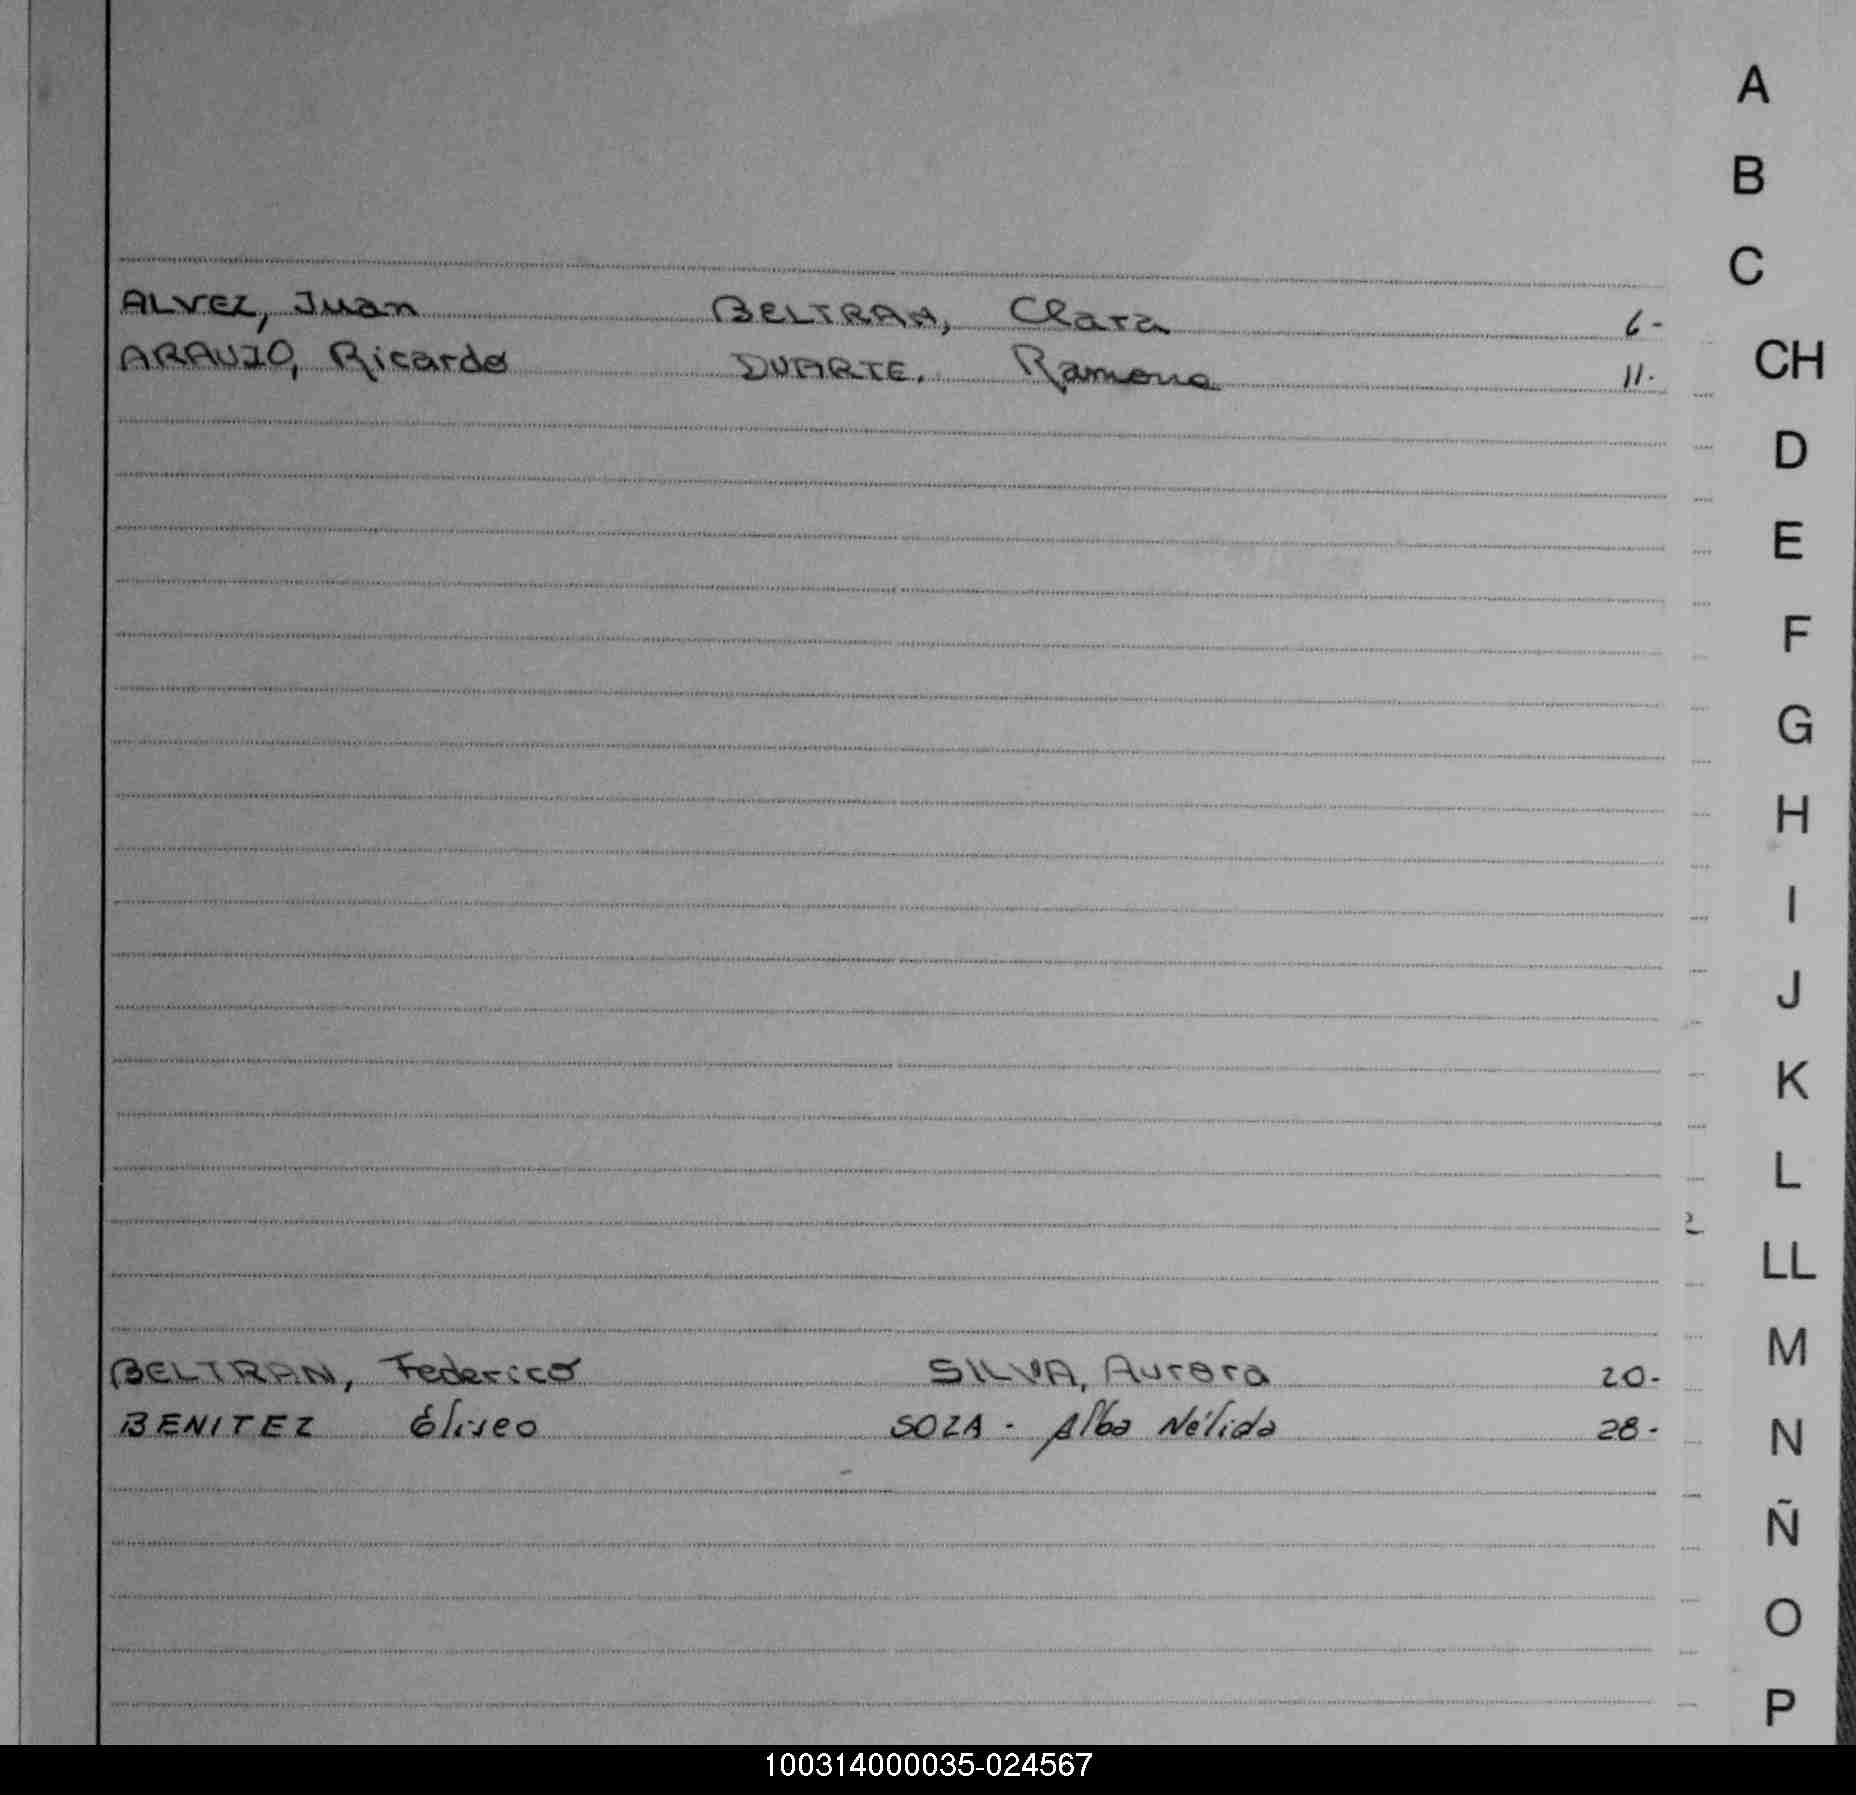 A
B
C
ALVEZ, Juan BELTRAN, Clara 6-
ARAUJO, Ricardo DUARTE. Ramona 11.
CH
D
E
F
G
H
I
J
K
L
2
LL
M
BELTRAN, Federico SILVA, Aurora 20-
BENITEZ Eliseo SOZA - Alba Nélida 28-
N
Ñ
O
P
100314000035-024567